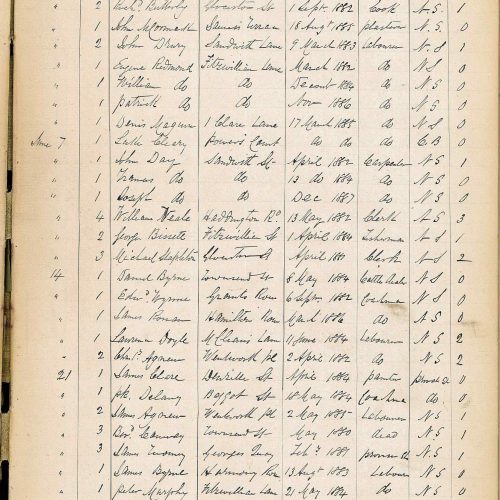 " 2 Butterly Glouster St 1 Sept. 1882 Cook N.S. 1
" 1 John McCormack James's Terrace 18 Augst 1885 plasterer N.S. 0
" 2 John Drury Sandwith Lane 9 March 1883 Labourer N.S 1
" 1 Eugene Redmond Fitzwilliam Lane March 1882 do N S 0
" 1 William do do 1884 do N S 0
" 1 Patrick do do Nov 1886 do N S 0
" 1 Denis Maguire 1 Clare Lane 17 March 1885 do N S 0
June 7 1 Luke Cleary Power's Court do do do C B 0
" 1 John Day Sandwith St April 1882 Carpenter N S 1
" 1 Thomas do do 13 do 1884 do N S 0
" 1 Joseph do do Dec 1887 do N S 0
" 4 William Haddington Rd. 13 May 1882 Clerk N S 3
" 2 George Bissett Fitzwilliam St 1 April 1884 Fisherman N S 1
" 3 Michael Stapleton Glouster St April 1881 Clerk N S 2
14 1 Daniel Byrne Townsend St 8 May 1884 Cattle N S 0
" 1 Edwd. Wynne Grants Row 6 Septr. 1882 Coalman N. S 0
" 1 James Hamilton Row March 1886 do N S 0
" 1 Lawrence Doyle McCleans Lane 11 June 1884 Labourer N S 2
" 2 Agnew Wentworth pl 2 April 1882 do N. S 2
21 1 James Clare Denzille St April 1884 painter 0
" 1 ptk. Delany Baggot St 18 May 1884 Coalman do. 0
" 2 James Agnew Wentworth pl 2 May 1885 Labourer N S 1
" 3 Canway Townsend St May 1880 dead N. S 1
" 3 James Georges Quay Feby. 1881 1
" 1 James Byrne Harmony Row 13 Augst 1883 Labourer N S 0
" 1 Peter Murphy Fitzwilliam Lane 21 May 1884 do N. S 0